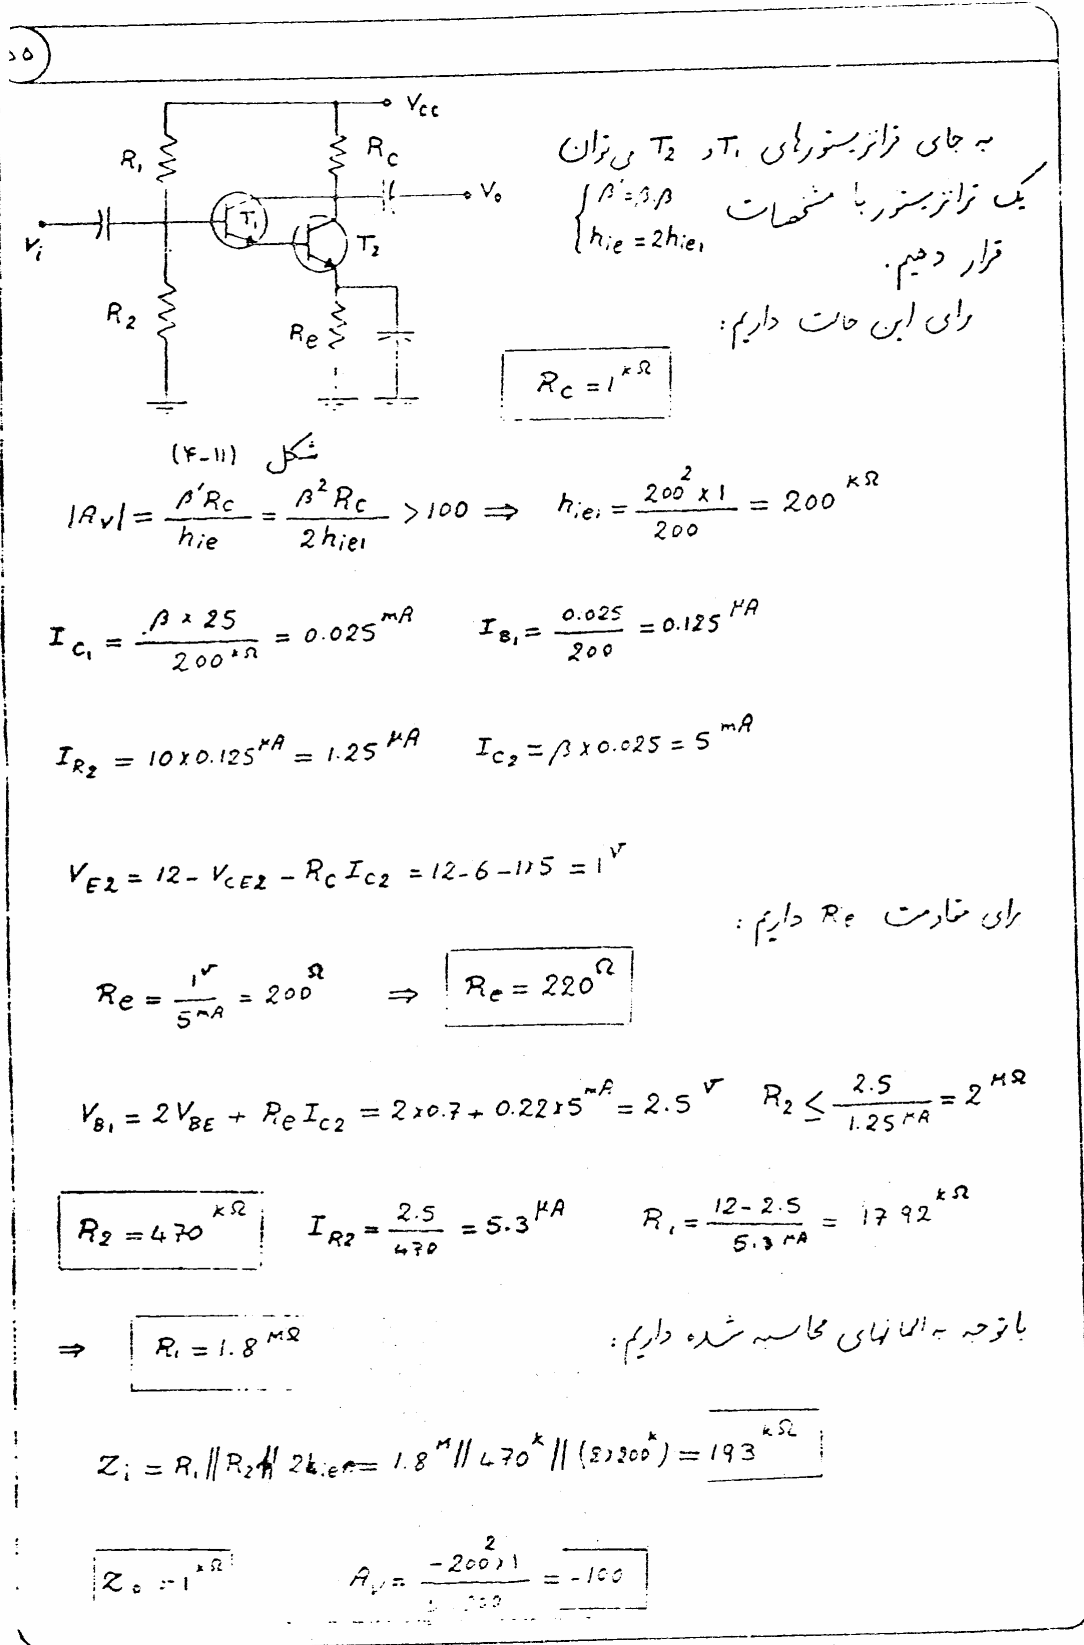 ۵۵
Vcc
R₁
Rc
V₀
Vi
T₁
T₂
R₂
Re
به جای ترانزیستورهای T₁ و T₂ می‌توان
یک ترانزیستور با مشخصات { β' = β.β
hie = 2hie₁
قرار دهیم.
برای این حالت داریم:
Rc = 1 kΩ
شکل (۴-۱۱)
|Av| = β'Rc / hie = β² Rc / 2hie₁ > 100 ⇒ hie₁ = 200² x 1 / 200 = 200 kΩ
Ic₁ = β x 25 / 200 kΩ = 0.025 mA I_B₁ = 0.025 / 200 = 0.125 μA
I_R2 = 10 x 0.125 μA = 1.25 μA Ic₂ = β x 0.025 = 5 mA
V_E2 = 12 - V_CE2 - Rc Ic2 = 12 - 6 - 1x5 = 1 v
برای مقاومت Re داریم:
Re = 1 v / 5 mA = 200 Ω ⇒ Re = 220 Ω
V_B₁ = 2V_BE + Re Ic2 = 2x0.7 + 0.22x5 mA = 2.5 v R₂ ≤ 2.5 / 1.25 μA = 2 MΩ
R₂ = 470 kΩ I_R2 = 2.5 / 470 = 5.3 μA R₁ = 12 - 2.5 / 5.3 μA = 1792 kΩ
⇒ R₁ = 1.8 MΩ با توجه به المانهای محاسبه شده داریم:
Zi = R₁ || R₂ || 2hie₁ = 1.8 M || 470 k || (2x200 k) = 193 kΩ
Z₀ = 1 kΩ Av = -200² x 1 / = -100